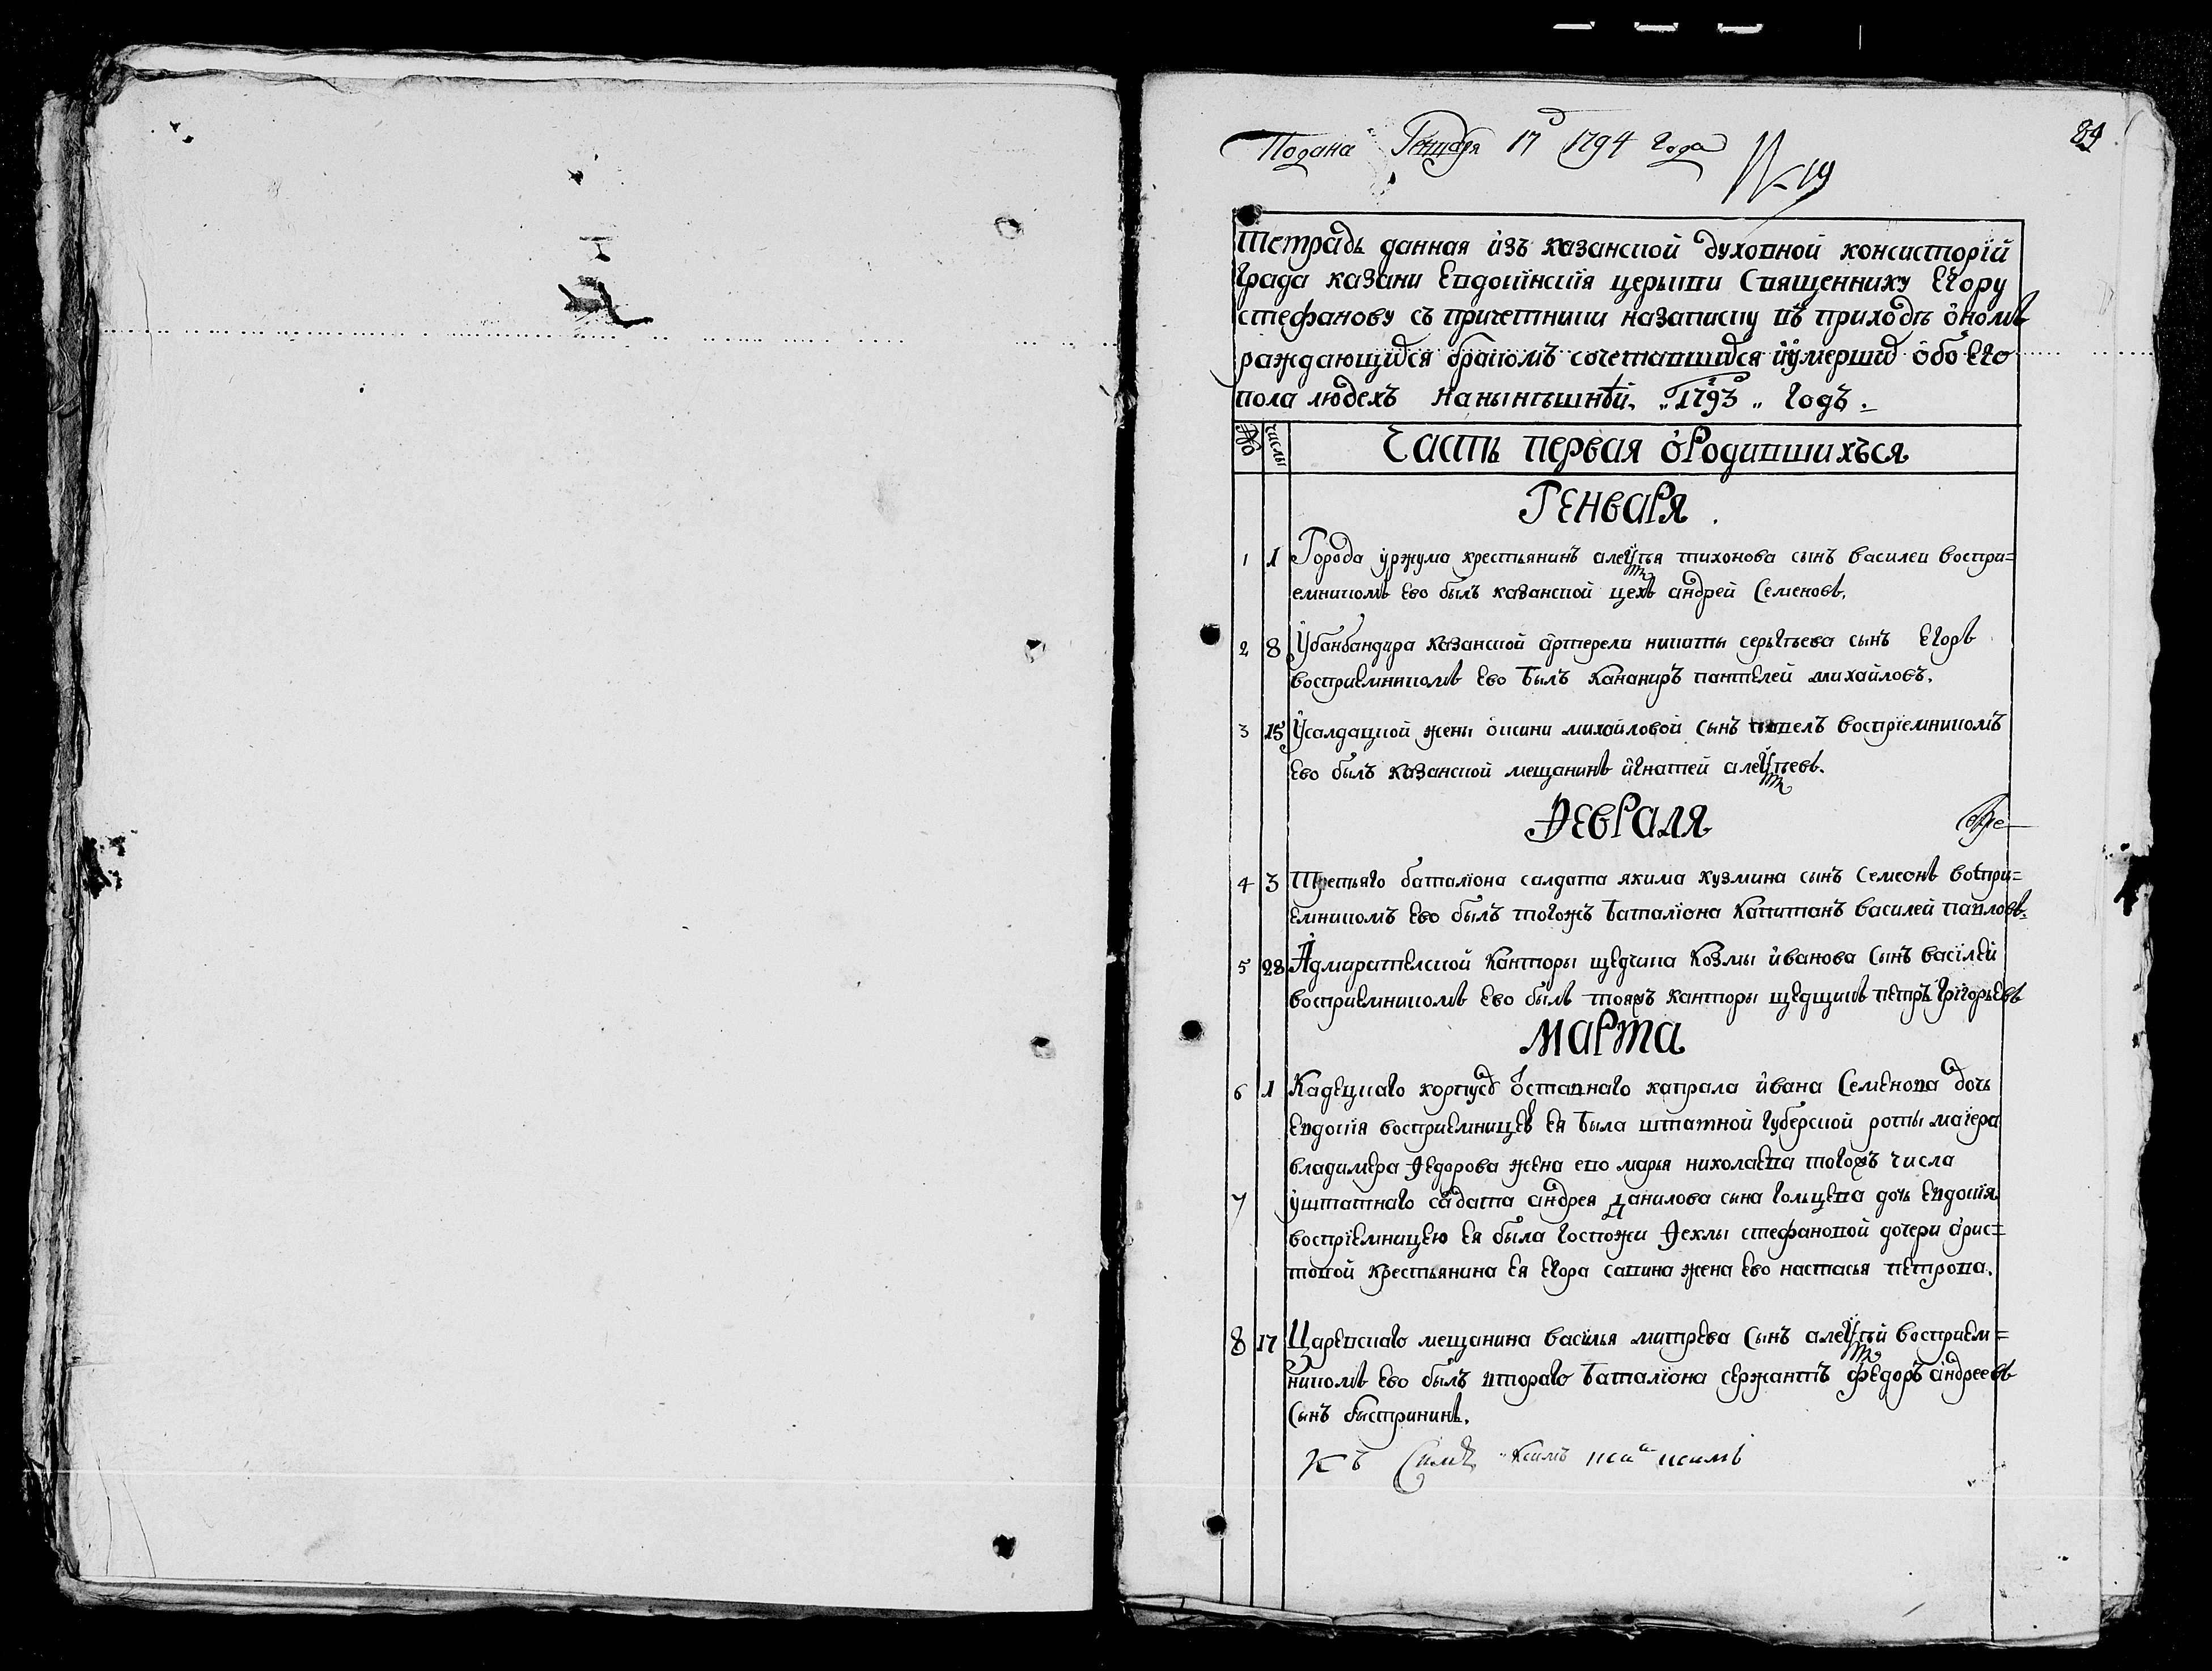 89
Подана Генваря 17 1794 года
№ 19
Тетрадь данная изъ казанской духовной консисторїй
града казани Евдокїинскїя церькви Священнику Егору
стефанову съ причетники назаписку въ приходѣ ономъ
раждающихся бракомъ сочетавшихся иумершихъ обоего
пола людехъ Нанынѣшнѣй „1793„ годъ.
№ числы Часть первая ородившихъся
Генваря.
1 1 Города уржума крестьянин алеѯѣя тихонова сынъ василеи воспри=
емникомъ ево былъ казанской цехъ андрей Семеновъ,
2 8 Убанбандира казанской артерели никиты серьгѣева сынъ Егоръ
восприемникомъ ево былъ Кананиръ пантелей михайловъ,
3 15 Усалдацкой жены михайловой сынъ павелъ воспрїемникомъ
ево былъ казанской мещанинъ игнатей алеѯѣевъ.
Февраля
4 3 Третьяго баталїона салдата якима кузмина сынъ Семеонъ воспри=
емникомъ ево былъ тогожъ баталїона Капитанъ василей павловъ.
5 28 Адмирателской Канторы щедчика Козмы иванова сынъ васїлей
восприемникомъ ево былъ тояжъ канторы щедщикъ петръ григорьевъ
Марта
6 1 Кадецкаго корпуса оставнаго капрала ивана Семенова дочь
Евдокїя восприемницею ея была штатной губерской роты маїера
владимера Федорова жена ево марья николаева тогожъ числа
7 уштатнаго салдата андрея данилова сына гольцева дочь Евдокїя
воспрїемницею ея была госпожи Феклы стефановой дочери арис=
товой крестьянина ея Егора савина жена ево настасья петрова.
8 17 Царевскаго мещанина васїлья митрева сынъ алеѯѣй восприем=
никомъ ево былъ втораго баталїона сержантъ федоръ андреевъ
сынъ быстрининъ.